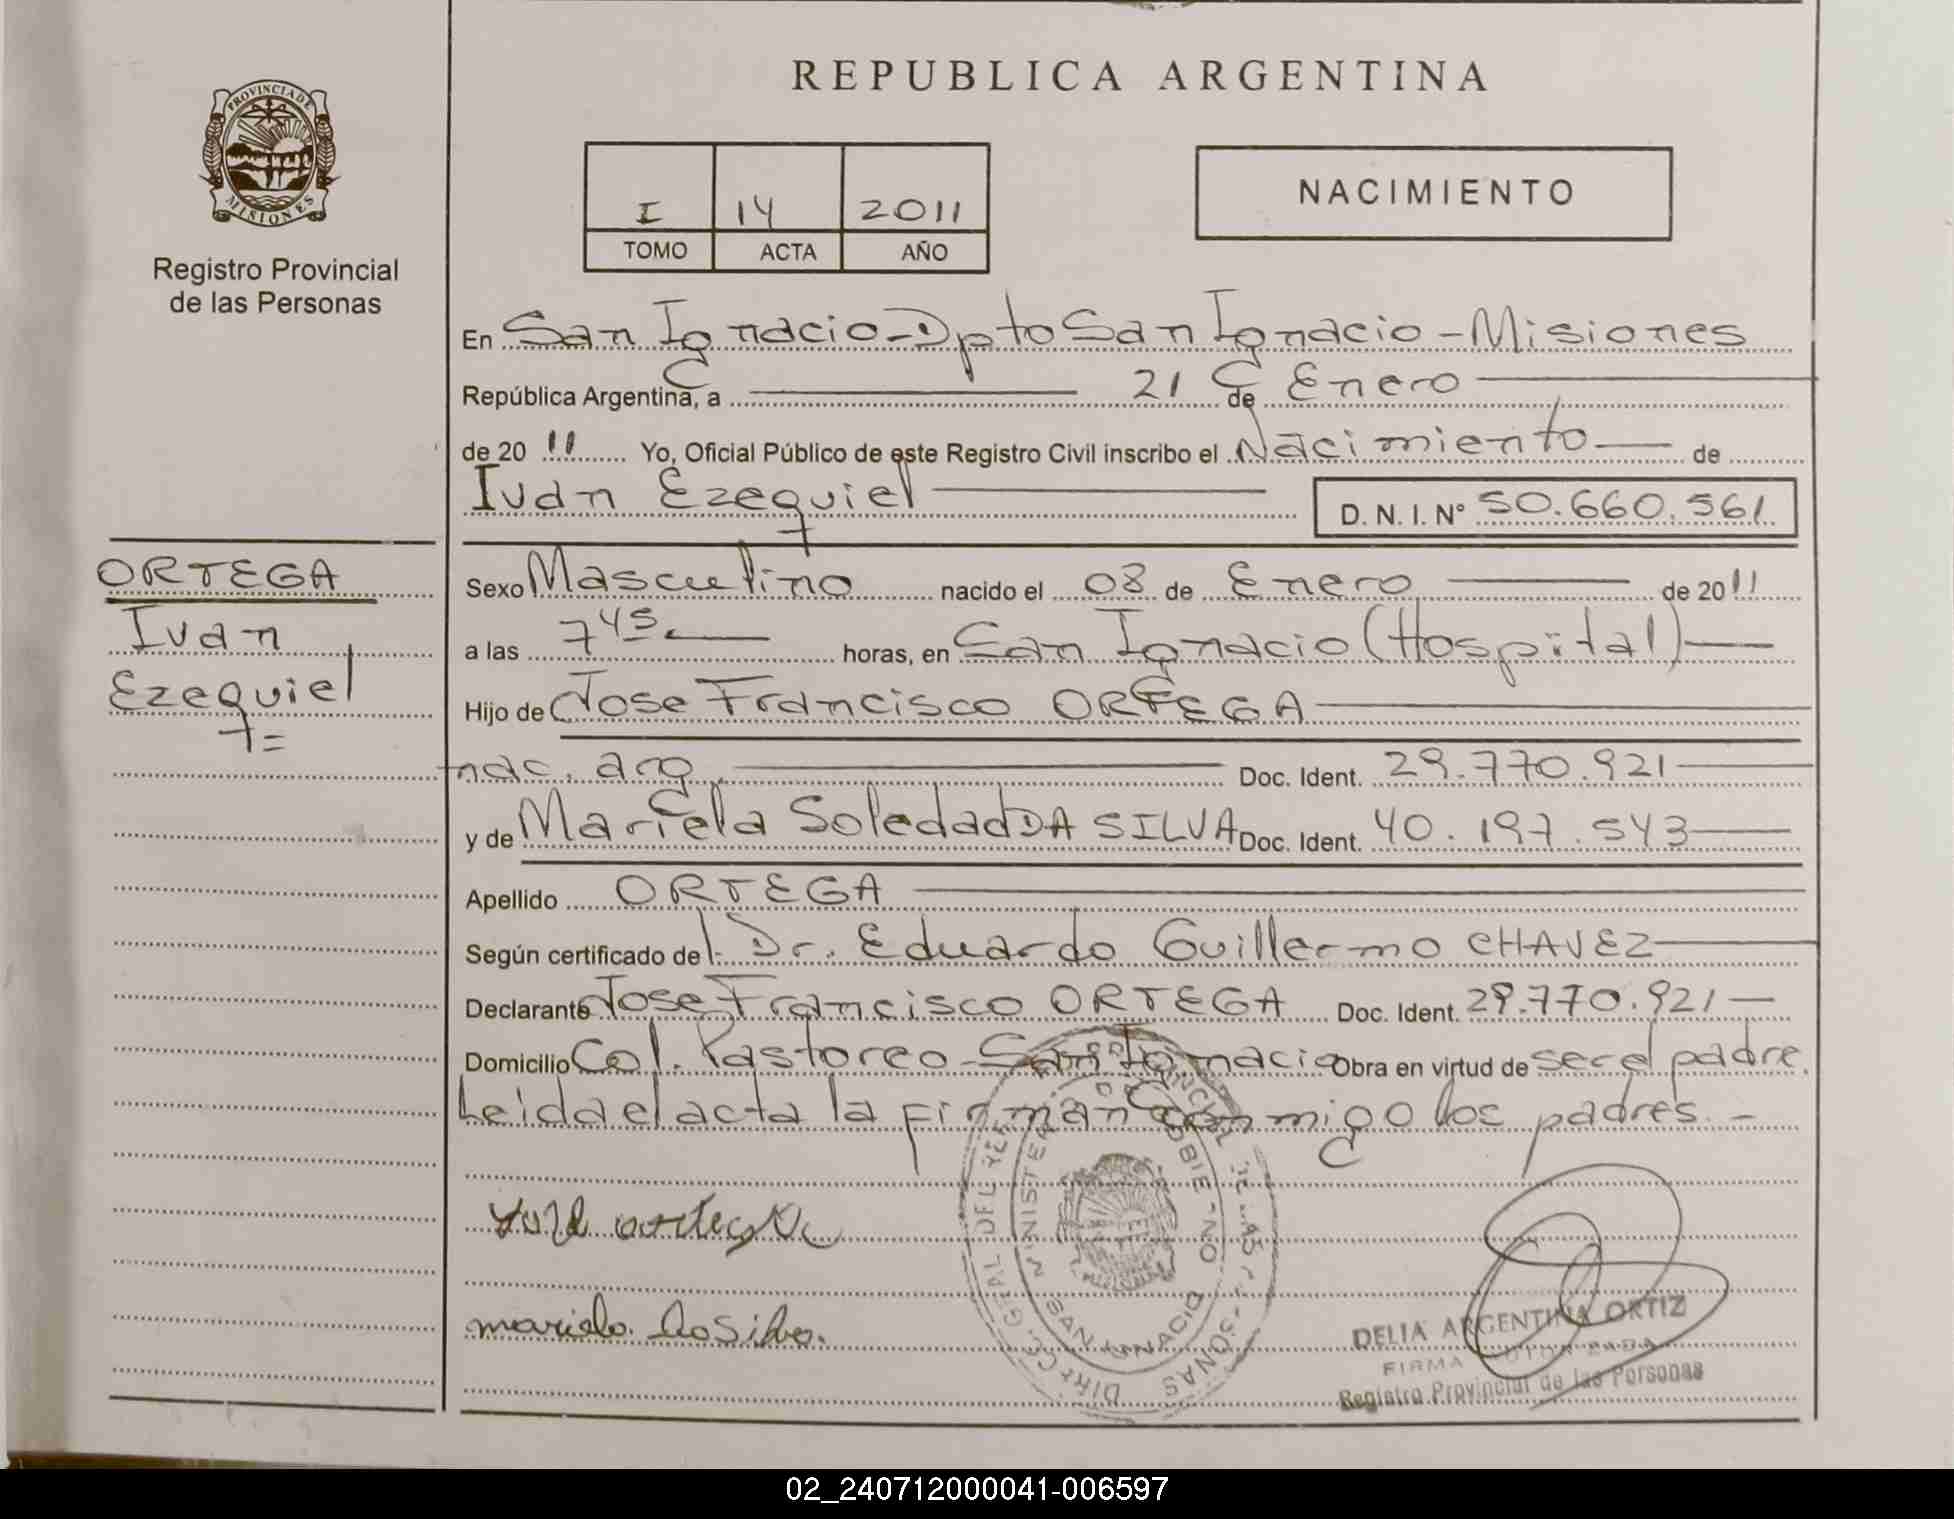 REPUBLICA ARGENTINA
PROVINCIA DE
MISIONES
Registro Provincial
de las Personas
I 14 2011
TOMO ACTA AÑO
NACIMIENTO
En San Ignacio - Dpto San Ignacio - Misiones
República Argentina, a 21 de Enero
de 20 11 Yo, Oficial Público de este Registro Civil inscribo el Nacimiento de
Ivan Ezequiel D. N. I. N° 50.660.561
ORTEGA
Ivan
Ezequiel
Sexo Masculino nacido el 08 de Enero de 20 11
a las 7 45 horas, en San Ignacio (Hospital)
Hijo de Jose Francisco ORTEGA
nac. arg. Doc. Ident. 29.770.921
y de Mariela Soledad DA SILVA Doc. Ident. 40.197.543
Apellido ORTEGA
Según certificado del Dr. Eduardo Guillermo CHAVEZ
Declarante Jose Francisco ORTEGA Doc. Ident. 29.770.921
Domicilio Col. Pastoreo San Ignacio Obra en virtud de ser el padre.
Leida el acta la firman conmigo los padres. -
mariela DaSilva.
SAN IGNACIO
DELIA ARGENTINA ORTIZ
FIRMA AUTORIZADA
Registro Provincial de las Personas
02_240712000041-006597